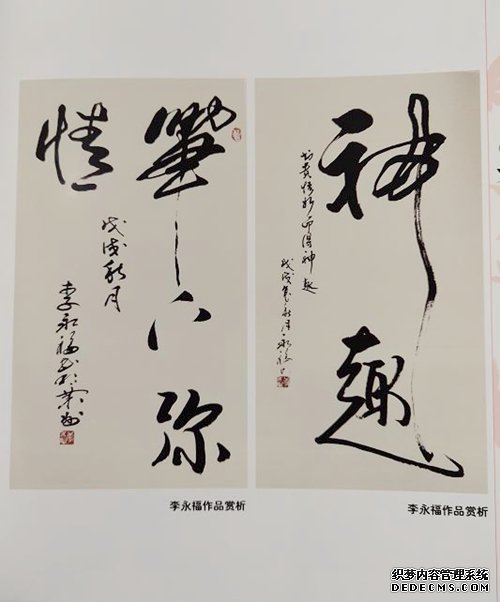 筆下弥
情
戊戌秋月
李永福书于
神趣
得神趣
戊戌秋月永福
李永福作品赏析
李永福作品赏析
织梦内容管理系统
DEDECMS.COM